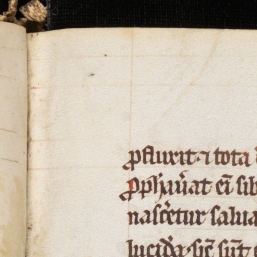 ꝓfluxit ⁊ tota
Ꝓph̄auat eī sib
nasc̄etur salua
lucida sic̄ sūt